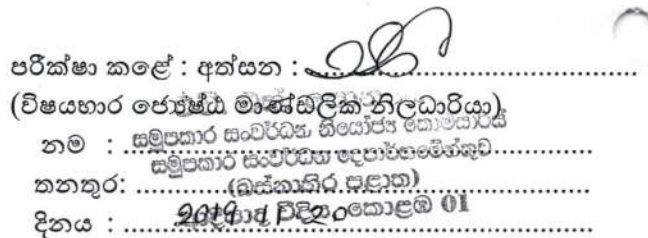 පරීක්ෂා කළේ : අත්සන :
(විෂයභාර ජ්‍යෙෂ්ඨ මාණ්ඩලික නිලධාරියා)
නම : සමූපකාර සංවර්ධන නියෝජ්‍ය කොමසාරිස්
සමූපකාර සංවර්ධන දෙපාර්තමේන්තුව
තනතුර: (බස්නාහිර පළාත)
දිනය : 2019 11 20 කොළඹ 01